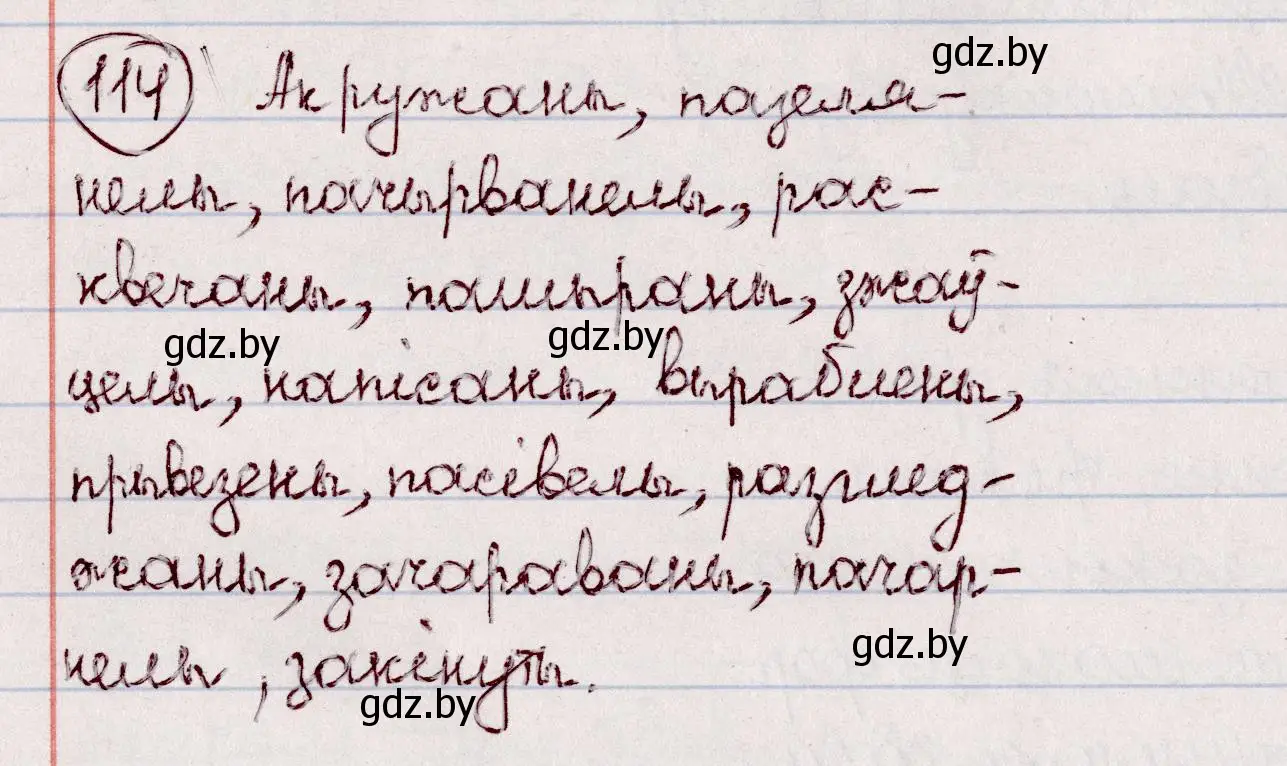 114 Акружаны, пазеля-
нелы, пачырванелы, рас-
квечаны, пашыраны, зжаў-
целы, напісаны, выраблены,
прывезены, пасівелы, разгляд-
жаны, зачараваны, пачар-
нелы, закінуты.
gdz.by
gdz.by
gdz.by
gdz.by
gdz.by